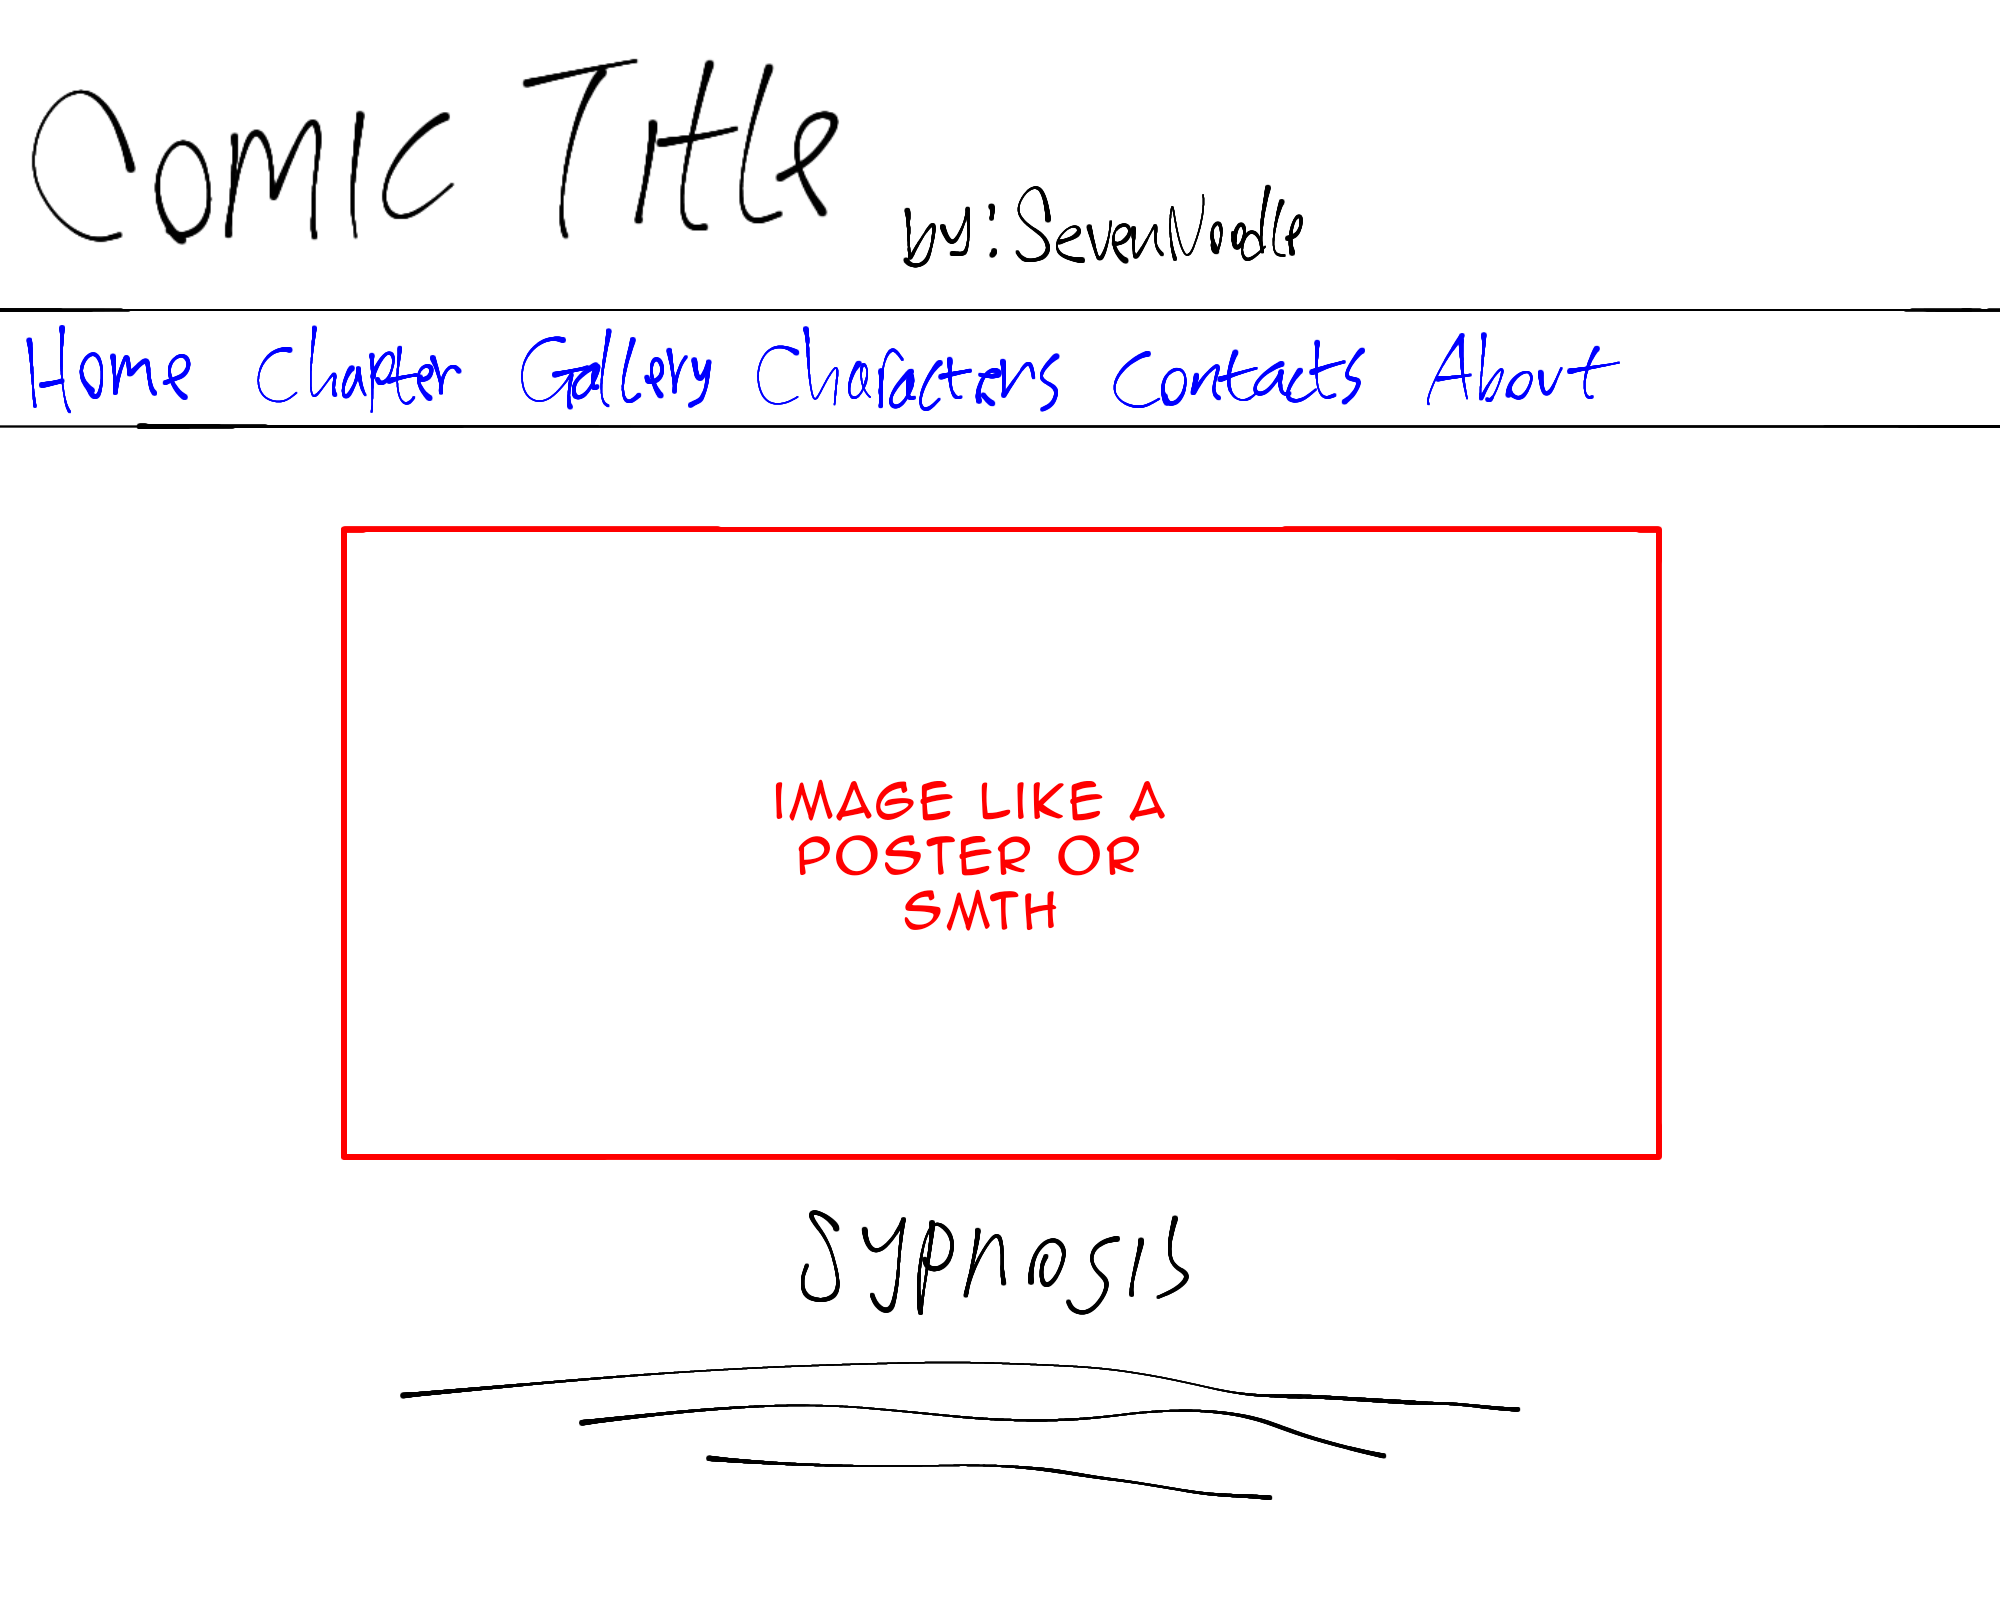 Comic Title
by: SevenNoodle
Home Chapter Gallery Characters Contacts About
IMAGE LIKE A
POSTER OR
SMTH
Sypnosis